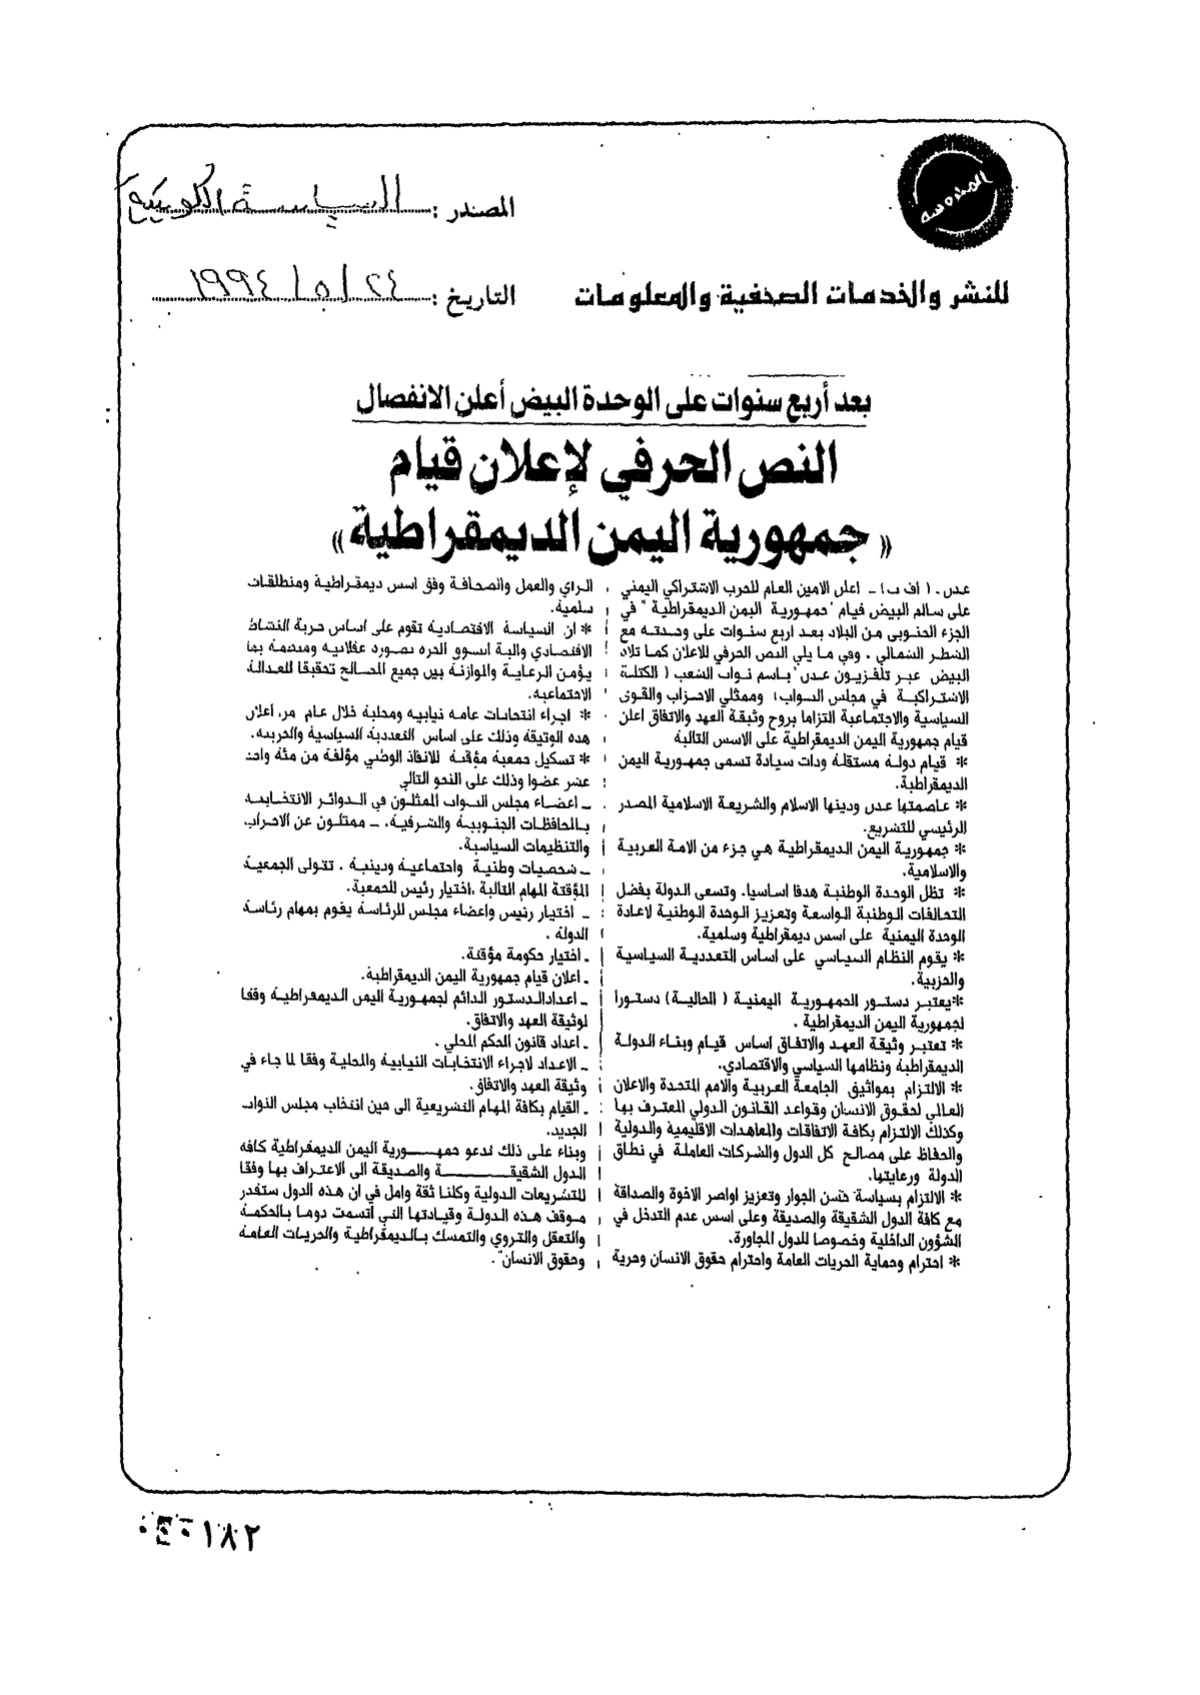 المدروسه
المصدر : السياسة الكويتية
للنشر والخدمات الصحفية والمعلومات
التاريخ : ٢٤ / ٥ / ١٩٩٤
بعد أربع سنوات على الوحدة البيض أعلن الانفصال
النص الحرفي لإعلان قيام
«جمهورية اليمن الديمقراطية»
عدن ـ ( اف ب ) ـ اعلن الامين العام للحزب الاشتراكي اليمني
على سالم البيض قيام "جمهورية اليمن الديمقراطية" في
الجزء الجنوبي من البلاد بعد اربع سنوات على وحدته مع
الشطر الشمالي . وفي ما يلي النص الحرفي للاعلان كما تلاه
البيض عبر تلفزيون عدن "باسم نواب الشعب ( الكتلة
الاشتراكية في مجلس النواب) وممثلي الاحزاب والقوى
السياسية والاجتماعية التزاما بروح وثيقة العهد والاتفاق اعلن
قيام جمهورية اليمن الديمقراطية على الاسس التالية
* قيام دولة مستقلة وذات سيادة تسمى جمهورية اليمن
الديمقراطية.
* عاصمتها عدن ودينها الاسلام والشريعة الاسلامية المصدر
الرئيسي للتشريع.
* جمهورية اليمن الديمقراطية هي جزء من الامة العربية
والاسلامية.
* تظل الوحدة الوطنية هدفا اساسيا. وتسعى الدولة بفضل
التحالفات الوطنية الواسعة وتعزيز الوحدة الوطنية لاعادة
الوحدة اليمنية على اسس ديمقراطية وسلمية.
* يقوم النظام السياسي على اساس التعددية السياسية
والحزبية.
*يعتبر دستور الجمهورية اليمنية ( الحالية) دستورا
لجمهورية اليمن الديمقراطية .
* تعتبر وثيقة العهد والاتفاق اساس قيام وبناء الدولة
الديمقراطية ونظامها السياسي والاقتصادي.
* الالتزام بمواثيق الجامعة العربية والامم المتحدة والاعلان
العالي لحقوق الانسان وقواعد القانون الدولي المعترف بها
وكذلك الالتزام بكافة الاتفاقات والمعاهدات الاقليمية والدولية
والحفاظ على مصالح كل الدول والشركات العاملة في نطاق
الدولة ورعايتها.
* الالتزام بسياسة حسن الجوار وتعزيز اواصر الاخوة والصداقة
مع كافة الدول الشقيقة والصديقة وعلى اسس عدم التدخل في
الشؤون الداخلية وخصوصا للدول المجاورة.
* احترام وحماية الحريات العامة واحترام حقوق الانسان وحرية
الراي والعمل والصحافة وفق اسس ديمقراطية ومنطلقات
سلمية.
* ان السياسة الاقتصادية تقوم على اساس حرية النشاط
الاقتصادي والية السوق الحرة بصورة عقلانية ومنظمة بما
يؤمن الرعاية والموازنة بين جميع المصالح تحقيقا للعدالة
الاجتماعية.
* اجراء انتخابات عامة نيابية ومحلية خلال عام من اعلان
هذه الوثيقة وذلك على اساس التعددية السياسية والحزبية.
* تشكيل جمعية مؤقتة للانقاذ الوطني مؤلفة من مئة واحد
عشر عضوا وذلك على النحو التالي
ـ اعضاء مجلس النواب الممثلون في الدوائر الانتخابية
بالمحافظات الجنوبية والشرقية. ـ ممثلون عن الاحزاب
والتنظيمات السياسية.
ـ شخصيات وطنية واجتماعية ودينية . تتولى الجمعية
المؤقتة المهام التالية .اختيار رئيس للجمعية.
ـ اختيار رئيس واعضاء مجلس للرئاسة يقوم بمهام رئاسة
الدولة .
ـ اختيار حكومة مؤقتة.
ـ اعلان قيام جمهورية اليمن الديمقراطية.
ـ اعدادالدستور الدائم لجمهورية اليمن الديمقراطية وفقا
لوثيقة العهد والاتفاق.
ـ اعداد قانون الحكم المحلي .
ـ الاعداد لاجراء الانتخابات النيابية والمحلية وفقا لما جاء في
وثيقة العهد والاتفاق.
ـ القيام بكافة المهام التشريعية الى حين انتخاب مجلس النواب
الجديد.
وبناء على ذلك ندعو جمهورية اليمن الديمقراطية كافة
الدول الشقيقة والصديقة الى الاعتراف بها وفقا
للتشريعات الدولية وكلنا ثقة وامل في ان هذه الدول ستقدر
موقف هذه الدولة وقيادتها التي اتسمت دوما بالحكمة
والتعقل والتروي والتمسك بالديمقراطية والحريات العامة
وحقوق الانسان".
٠٤٠١٨٢